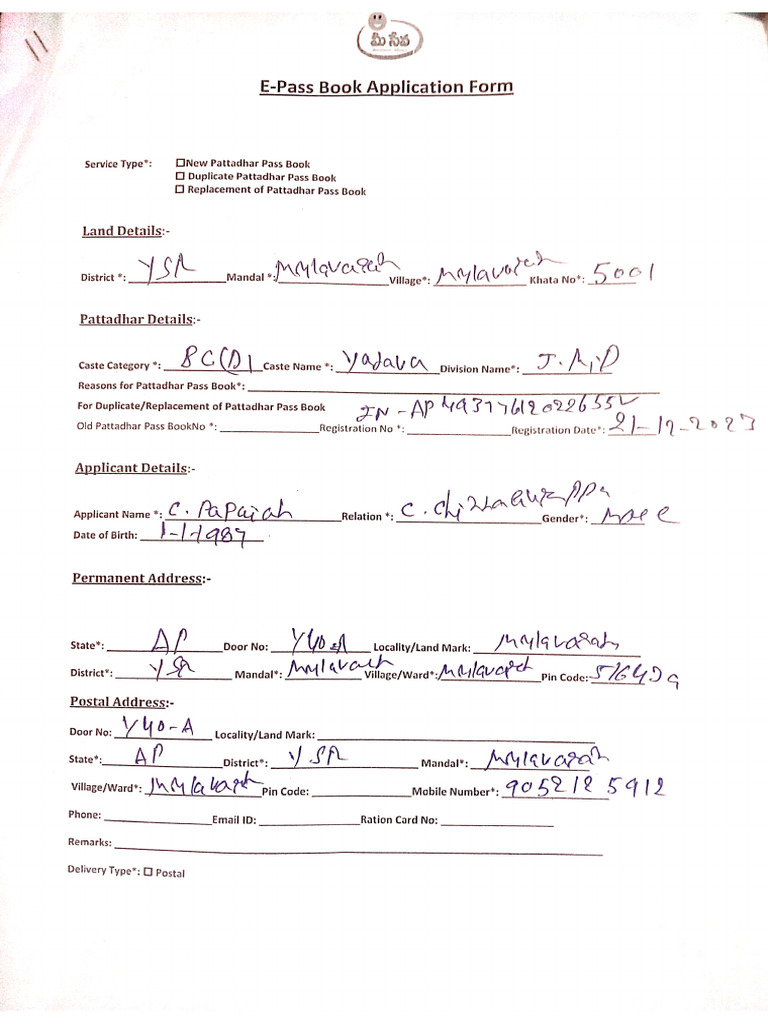 11
మీ సేవ
E-Pass Book Application Form
Service Type*: ☐New Pattadhar Pass Book
☐ Duplicate Pattadhar Pass Book
☐ Replacement of Pattadhar Pass Book
Land Details:-
District *: YSR Mandal *: Mylavaram Village*: Mylavaram Khata No*: 5001
Pattadhar Details:-
Caste Category *: BC(D) Caste Name *: Yadava Division Name*: J.M.D
Reasons for Pattadhar Pass Book*:
For Duplicate/Replacement of Pattadhar Pass Book IN-AP49377612022655V
Old Pattadhar Pass BookNo *: Registration No *: Registration Date*: 21-12-2023
Applicant Details:-
Applicant Name *: C. Papaiah Relation *: C. Gender*: Male
Date of Birth: 1-1-1987
Permanent Address:-
State*: AP Door No: Y40-A Locality/Land Mark: Mylavaram
District*: YSR Mandal*: Mylavaram Village/Ward*: Mylavaram Pin Code:
Postal Address:-
Door No: Y40-A Locality/Land Mark:
State*: AP District*: YSR Mandal*: Mylavaram
Village/Ward*: Mylavaram Pin Code: Mobile Number*: 9052125912
Phone: Email ID: Ration Card No:
Remarks:
Delivery Type*: ☐ Postal